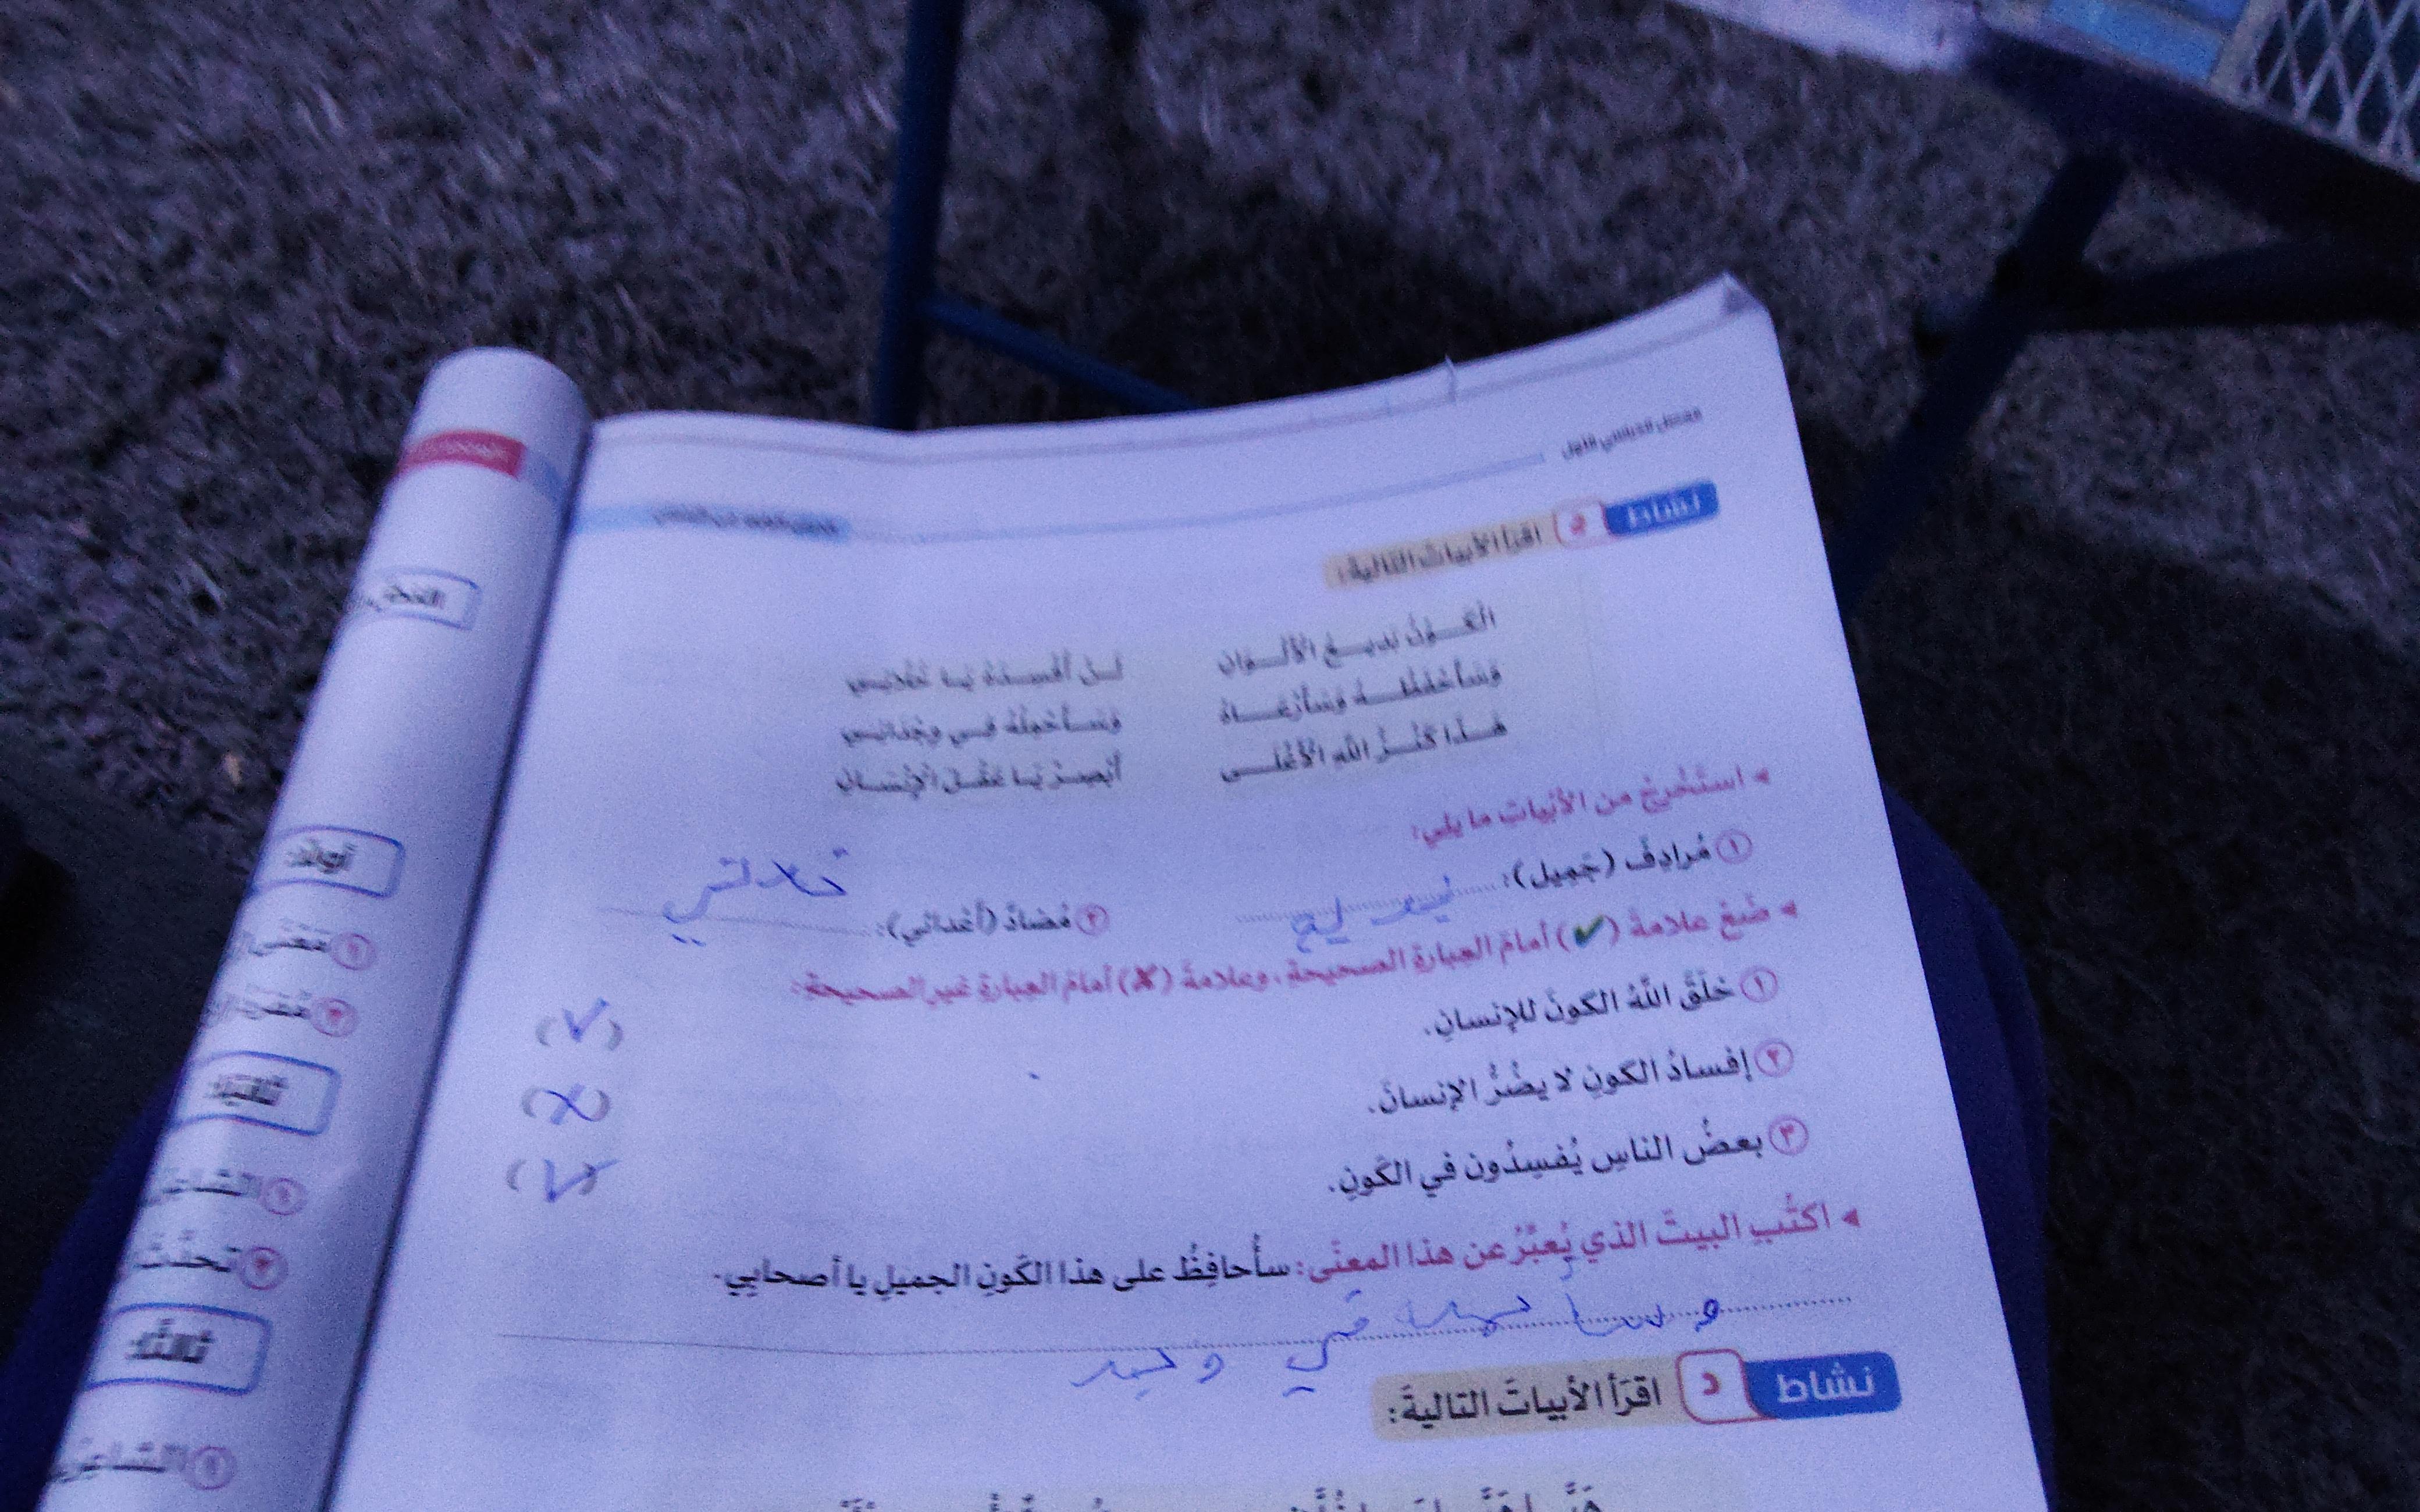 الفصل الدراسي الأول
نشاط اقرأ الأبيات التالية:
الْكَوْنُ بَدِيعُ الْأَلْوَانِ لَنْ أُفْسِدَهُ يَا خُلَّانِي
وَسَأَحْفَظُهُ وَسَأَرْعَاهُ وَسَأَحْمِلُهُ فِي وِجْدَانِي
هَذَا كَنْزُ اللهِ الْأَغْلَى أَبْصِرْ يَا عَقْلَ الْإِنْسَانِ
◂ استَخْرِجْ من الأبياتِ ما يلي:
١ مُرادِفَ (جَمِيل):
٢ مُضادَّ (أعْدائي):
◂ ضَعْ علامةَ (✓) أمامَ العبارةِ الصحيحةِ، وعلامةَ (✗) أمامَ العبارةِ غيرِ الصحيحةِ:
١ خلَقَ اللَّهُ الكونَ للإنسانِ. (✓)
٢ إفسادُ الكونِ لا يضُرُّ الإنسانَ. (✗)
٣ بعضُ الناسِ يُفسِدُون في الكَونِ. (✓)
◂ اكتُبِ البيتَ الذي يُعبِّرُ عن هذا المعنَى: سأُحافِظُ على هذا الكَونِ الجميلِ يا أصحابِي.
نشاط د اقرَأ الأبياتَ التاليةَ:
أولًا:
١ مَعْنَى
٢
ثانيًا:
١ الشاعر
٢ تحدَّثَ
ثالثًا:
١ الشاعر